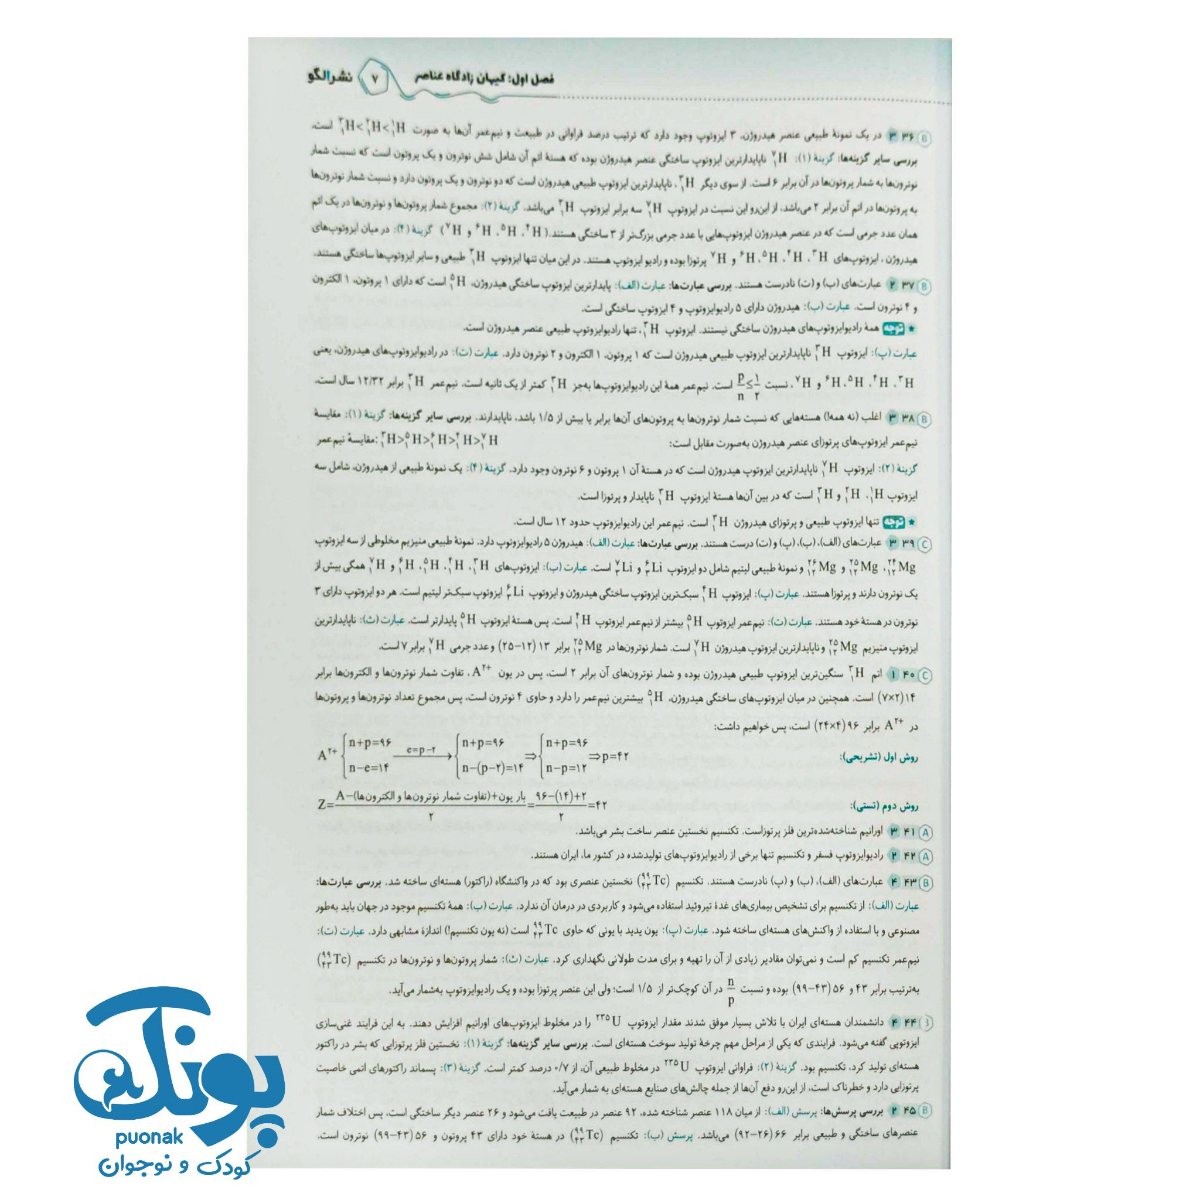 فصل اول: کیهان زادگاه عناصر ۷ نشر الگو
B ۳۶ ۳ در یک نمونهٔ طبیعی عنصر هیدروژن، ۳ ایزوتوپ وجود دارد که ترتیب درصد فراوانی در طبیعت و نیم‌عمر آن‌ها به صورت ³₁H<²₁H<¹₁H است.
بررسی سایر گزینه‌ها: گزینهٔ (۱): ⁷₁H ناپایدارترین ایزوتوپ ساختگی عنصر هیدروژن بوده که هستهٔ اتم آن شامل شش نوترون و یک پروتون است که نسبت شمار
نوترون‌ها به شمار پروتون‌ها در آن برابر ۶ است. از سوی دیگر ³₁H، ناپایدارترین ایزوتوپ طبیعی هیدروژن است که دو نوترون و یک پروتون دارد و نسبت شمار نوترون‌ها
به پروتون‌ها در اتم آن برابر ۲ می‌باشد، از این‌رو این نسبت در ایزوتوپ ⁷₁H سه برابر ایزوتوپ ³₁H می‌باشد. گزینهٔ (۲): مجموع شمار پروتون‌ها و نوترون‌ها در یک اتم
همان عدد جرمی است که در عنصر هیدروژن ایزوتوپ‌هایی با عدد جرمی بزرگ‌تر از ۳ ساختگی هستند. (⁴₁H، ⁵₁H، ⁶₁H و ⁷₁H) گزینهٔ (۴): در میان ایزوتوپ‌های
هیدروژن، ایزوتوپ‌های ³₁H، ⁴₁H، ⁵₁H، ⁶₁H و ⁷₁H پرتوزا بوده و رادیو ایزوتوپ هستند. در این میان تنها ایزوتوپ ³₁H طبیعی و سایر ایزوتوپ‌ها ساختگی هستند.
B ۳۷ ۲ عبارت‌های (ب) و (ت) نادرست هستند. بررسی عبارت‌ها: عبارت (الف): پایدارترین ایزوتوپ ساختگی هیدروژن، ⁵₁H است که دارای ۱ پروتون، ۱ الکترون
و ۴ نوترون است. عبارت (ب): هیدروژن دارای ۵ رادیوایزوتوپ و ۴ ایزوتوپ ساختگی است.
★ توجه همهٔ رادیوایزوتوپ‌های هیدروژن ساختگی نیستند. ایزوتوپ ³₁H، تنها رادیوایزوتوپ طبیعی عنصر هیدروژن است.
عبارت (پ): ایزوتوپ ³₁H ناپایدارترین ایزوتوپ طبیعی هیدروژن است که ۱ پروتون، ۱ الکترون و ۲ نوترون دارد. عبارت (ت): در رادیوایزوتوپ‌های هیدروژن، یعنی
³₁H، ⁴₁H، ⁵₁H، ⁶₁H و ⁷₁H، نسبت p/n ≤ ۱/۲ است. نیم‌عمر همهٔ این رادیوایزوتوپ‌ها به‌جز ³₁H کمتر از یک ثانیه است. نیم‌عمر ³₁H برابر ۱۲/۳۲ سال است.
B ۳۸ ۳ اغلب (نه همه!) هسته‌هایی که نسبت شمار نوترون‌ها به پروتون‌های آن‌ها برابر یا بیش از ۱/۵ باشد، ناپایدارند. بررسی سایر گزینه‌ها: گزینهٔ (۱): مقایسهٔ
نیم‌عمر ایزوتوپ‌های پرتوزای عنصر هیدروژن به‌صورت مقابل است: ³₁H>⁵₁H>⁶₁H>⁴₁H>⁷₁H :مقایسهٔ نیم‌عمر
گزینهٔ (۲): ایزوتوپ ⁷₁H ناپایدارترین ایزوتوپ هیدروژن است که در هستهٔ آن ۱ پروتون و ۶ نوترون وجود دارد. گزینهٔ (۴): یک نمونهٔ طبیعی از هیدروژن، شامل سه
ایزوتوپ ¹₁H، ²₁H و ³₁H است که در بین آن‌ها هستهٔ ایزوتوپ ³₁H ناپایدار و پرتوزا است.
★ توجه تنها ایزوتوپ طبیعی و پرتوزای هیدروژن ³₁H است. نیم‌عمر این رادیوایزوتوپ حدود ۱۲ سال است.
C ۳۹ ۳ عبارت‌های (الف)، (ب)، (پ) و (ت) درست هستند. بررسی عبارت‌ها: عبارت (الف): هیدروژن ۵ رادیوایزوتوپ دارد. نمونهٔ طبیعی منیزیم مخلوطی از سه ایزوتوپ
²⁴₁₂Mg، ²⁵₁₂Mg و ²⁶₁₂Mg و نمونهٔ طبیعی لیتیم شامل دو ایزوتوپ ⁶₃Li و ⁷₃Li است. عبارت (ب): ایزوتوپ‌های ³₁H، ⁴₁H، ⁵₁H، ⁶₁H و ⁷₁H همگی بیش از
یک نوترون دارند و پرتوزا هستند. عبارت (پ): ایزوتوپ ⁴₁H سبک‌ترین ایزوتوپ ساختگی هیدروژن و ایزوتوپ ⁶₃Li ایزوتوپ سبک‌تر لیتیم است. هر دو ایزوتوپ دارای ۳
نوترون در هستهٔ خود هستند. عبارت (ت): نیم‌عمر ایزوتوپ ⁵₁H بیشتر از نیم‌عمر ایزوتوپ ⁴₁H است. پس هستهٔ ایزوتوپ ⁵₁H پایدارتر است. عبارت (ث): ناپایدارترین
ایزوتوپ منیزیم ²⁵₁₂Mg و ناپایدارترین ایزوتوپ هیدروژن ⁷₁H است. شمار نوترون‌ها در ²⁵₁₂Mg برابر ۱۳ (۲۵−۱۲) و عدد جرمی ⁷₁H برابر ۷ است.
C ۴۰ ۱ اتم ³₁H سنگین‌ترین ایزوتوپ طبیعی هیدروژن بوده و شمار نوترون‌های آن برابر ۲ است، پس در یون A²⁺، تفاوت شمار نوترون‌ها و الکترون‌ها برابر
۱۴ (۷×۲) است. همچنین در میان ایزوتوپ‌های ساختگی هیدروژن، ⁵₁H بیشترین نیم‌عمر را دارد و حاوی ۴ نوترون است، پس مجموع تعداد نوترون‌ها و پروتون‌ها
در A²⁺ برابر ۹۶ (۲۴×۴) است، پس خواهیم داشت:
روش اول (تشریحی): A²⁺ {n+p=۹۶, n−e=۱۴ —e=p−۲→ {n+p=۹۶, n−(p−۲)=۱۴ ⇒ {n+p=۹۶, n−p=۱۲ ⇒ p=۴۲
روش دوم (تستی): Z = (بار یون+(تفاوت شمار نوترون‌ها و الکترون‌ها)−A)/۲ = (۹۶−(۱۴)+۲)/۲ = ۴۲
A ۴۱ ۳ اورانیم شناخته‌شده‌ترین فلز پرتوزاست. تکنسیم نخستین عنصر ساخت بشر می‌باشد.
A ۴۲ ۲ رادیوایزوتوپ فسفر و تکنسیم تنها برخی از رادیوایزوتوپ‌های تولیدشده در کشور ما، ایران هستند.
B ۴۳ ۴ عبارت‌های (الف)، (ب) و (پ) نادرست هستند. تکنسیم (⁹⁹₄₃Tc) نخستین عنصری بود که در واکنشگاه (راکتور) هسته‌ای ساخته شد. بررسی عبارت‌ها:
عبارت (الف): از تکنسیم برای تشخیص بیماری‌های غدهٔ تیروئید استفاده می‌شود و کاربردی در درمان آن ندارد. عبارت (ب): همهٔ تکنسیم موجود در جهان باید به‌طور
مصنوعی و با استفاده از واکنش‌های هسته‌ای ساخته شود. عبارت (پ): یون یدید با یونی که حاوی ⁹⁹₄₃Tc است (نه یون تکنسیم!) اندازهٔ مشابهی دارد. عبارت (ت):
نیم‌عمر تکنسیم کم است و نمی‌توان مقادیر زیادی از آن را تهیه و برای مدت طولانی نگهداری کرد. عبارت (ث): شمار پروتون‌ها و نوترون‌ها در تکنسیم (⁹⁹₄₃Tc)
به‌ترتیب برابر ۴۳ و ۵۶ (۹۹−۴۳) بوده و نسبت n/p در آن کوچک‌تر از ۱/۵ است؛ ولی این عنصر پرتوزا بوده و یک رادیوایزوتوپ به‌شمار می‌آید.
B ۴۴ ۴ دانشمندان هسته‌ای ایران با تلاش بسیار موفق شدند مقدار ایزوتوپ ²³⁵U را در مخلوط ایزوتوپ‌های اورانیم افزایش دهند. به این فرایند غنی‌سازی
ایزوتوپی گفته می‌شود. فرایندی که یکی از مراحل مهم چرخهٔ تولید سوخت هسته‌ای است. بررسی سایر گزینه‌ها: گزینهٔ (۱): نخستین فلز پرتوزایی که بشر در راکتور
هسته‌ای تولید کرد، تکنسیم بود. گزینهٔ (۲): فراوانی ایزوتوپ ²³⁵U در مخلوط طبیعی آن، از ۰/۷ درصد کمتر است. گزینهٔ (۳): پسماند راکتورهای اتمی خاصیت
پرتوزایی دارد و خطرناک است، از این‌رو دفع آن‌ها از جمله چالش‌های صنایع هسته‌ای به شمار می‌آید.
B ۴۵ ۲ بررسی پرسش‌ها: پرسش (الف): از میان ۱۱۸ عنصر شناخته شده، ۹۲ عنصر در طبیعت یافت می‌شود و ۲۶ عنصر دیگر ساختگی است، پس اختلاف شمار
عنصرهای ساختگی و طبیعی برابر ۶۶ (۹۲−۲۶) می‌باشد. پرسش (ب): تکنسیم (⁹⁹₄₃Tc) در هستهٔ خود دارای ۴۳ پروتون و ۵۶ (۹۹−۴۳) نوترون است.
پونک
puonak
کودک و نوجوان